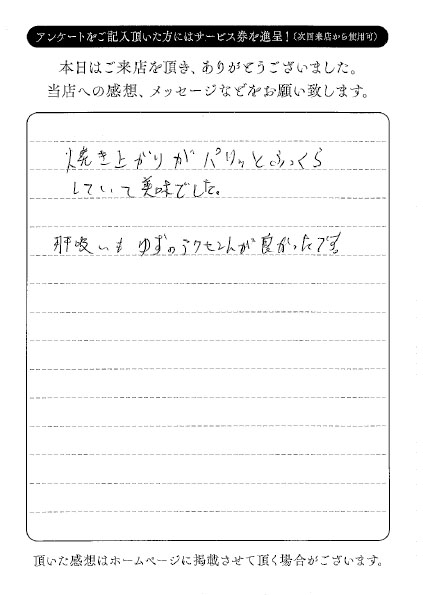 アンケートをご記入頂いた方にはサービス券を進呈！(次回来店から使用可)
本日はご来店を頂き、ありがとうございました。
当店への感想、メッセージなどをお願い致します。
焼き上がりがパリッとふっくら
していて美味でした。
肝吸いもゆずのアクセントが良かったです
頂いた感想はホームページに掲載させて頂く場合がございます。